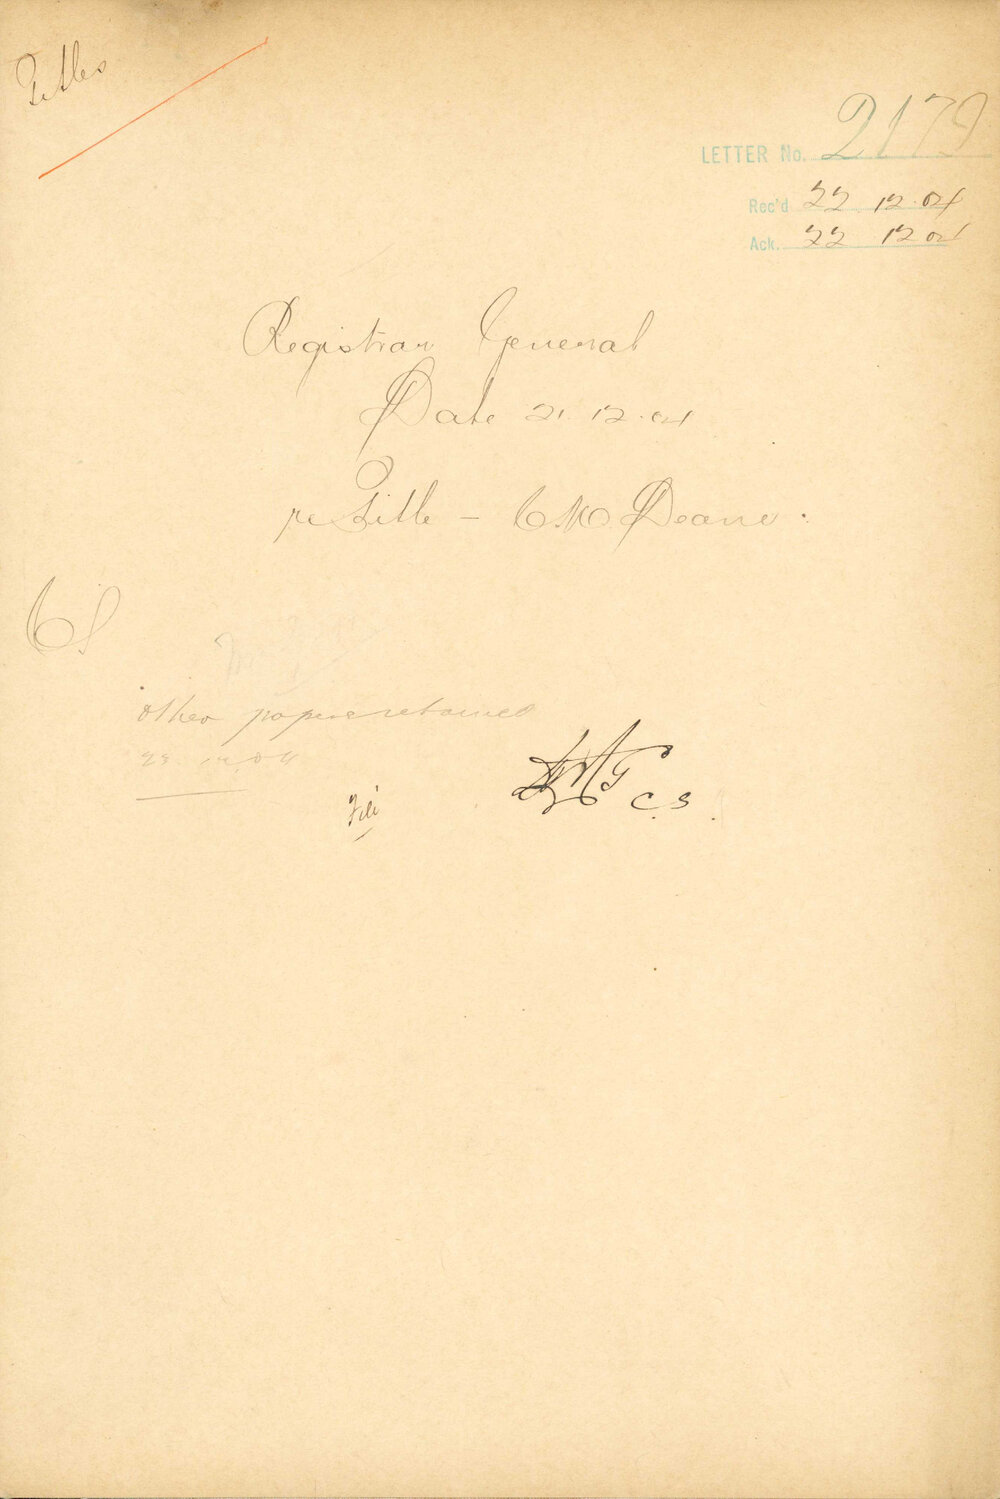 Titles
LETTER No. 2179
Rec'd 22 12.04
Ack. 22 12 04
Registrar General
Date 21.12.04
re Title - C M Deane.
CS
other papers retained
22.12.04
File
C.S.